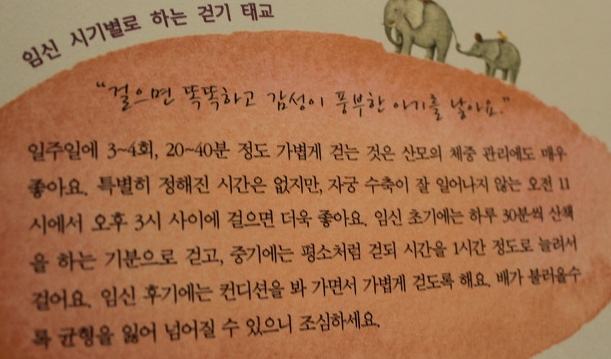 임신 시기별로 하는 걷기 태교
"걸으면 똑똑하고 감성이 풍부한 아기를 낳아요."
일주일에 3~4회, 20~40분 정도 가볍게 걷는 것은 산모의 체중 관리에도 매우
좋아요. 특별히 정해진 시간은 없지만, 자궁 수축이 잘 일어나지 않는 오전 11
시에서 오후 3시 사이에 걸으면 더욱 좋아요. 임신 초기에는 하루 30분씩 산책
을 하는 기분으로 걷고, 중기에는 평소처럼 걷되 시간을 1시간 정도로 늘려서
걸어요. 임신 후기에는 컨디션을 봐 가면서 가볍게 걷도록 해요. 배가 불러올수
록 균형을 잃어 넘어질 수 있으니 조심하세요.